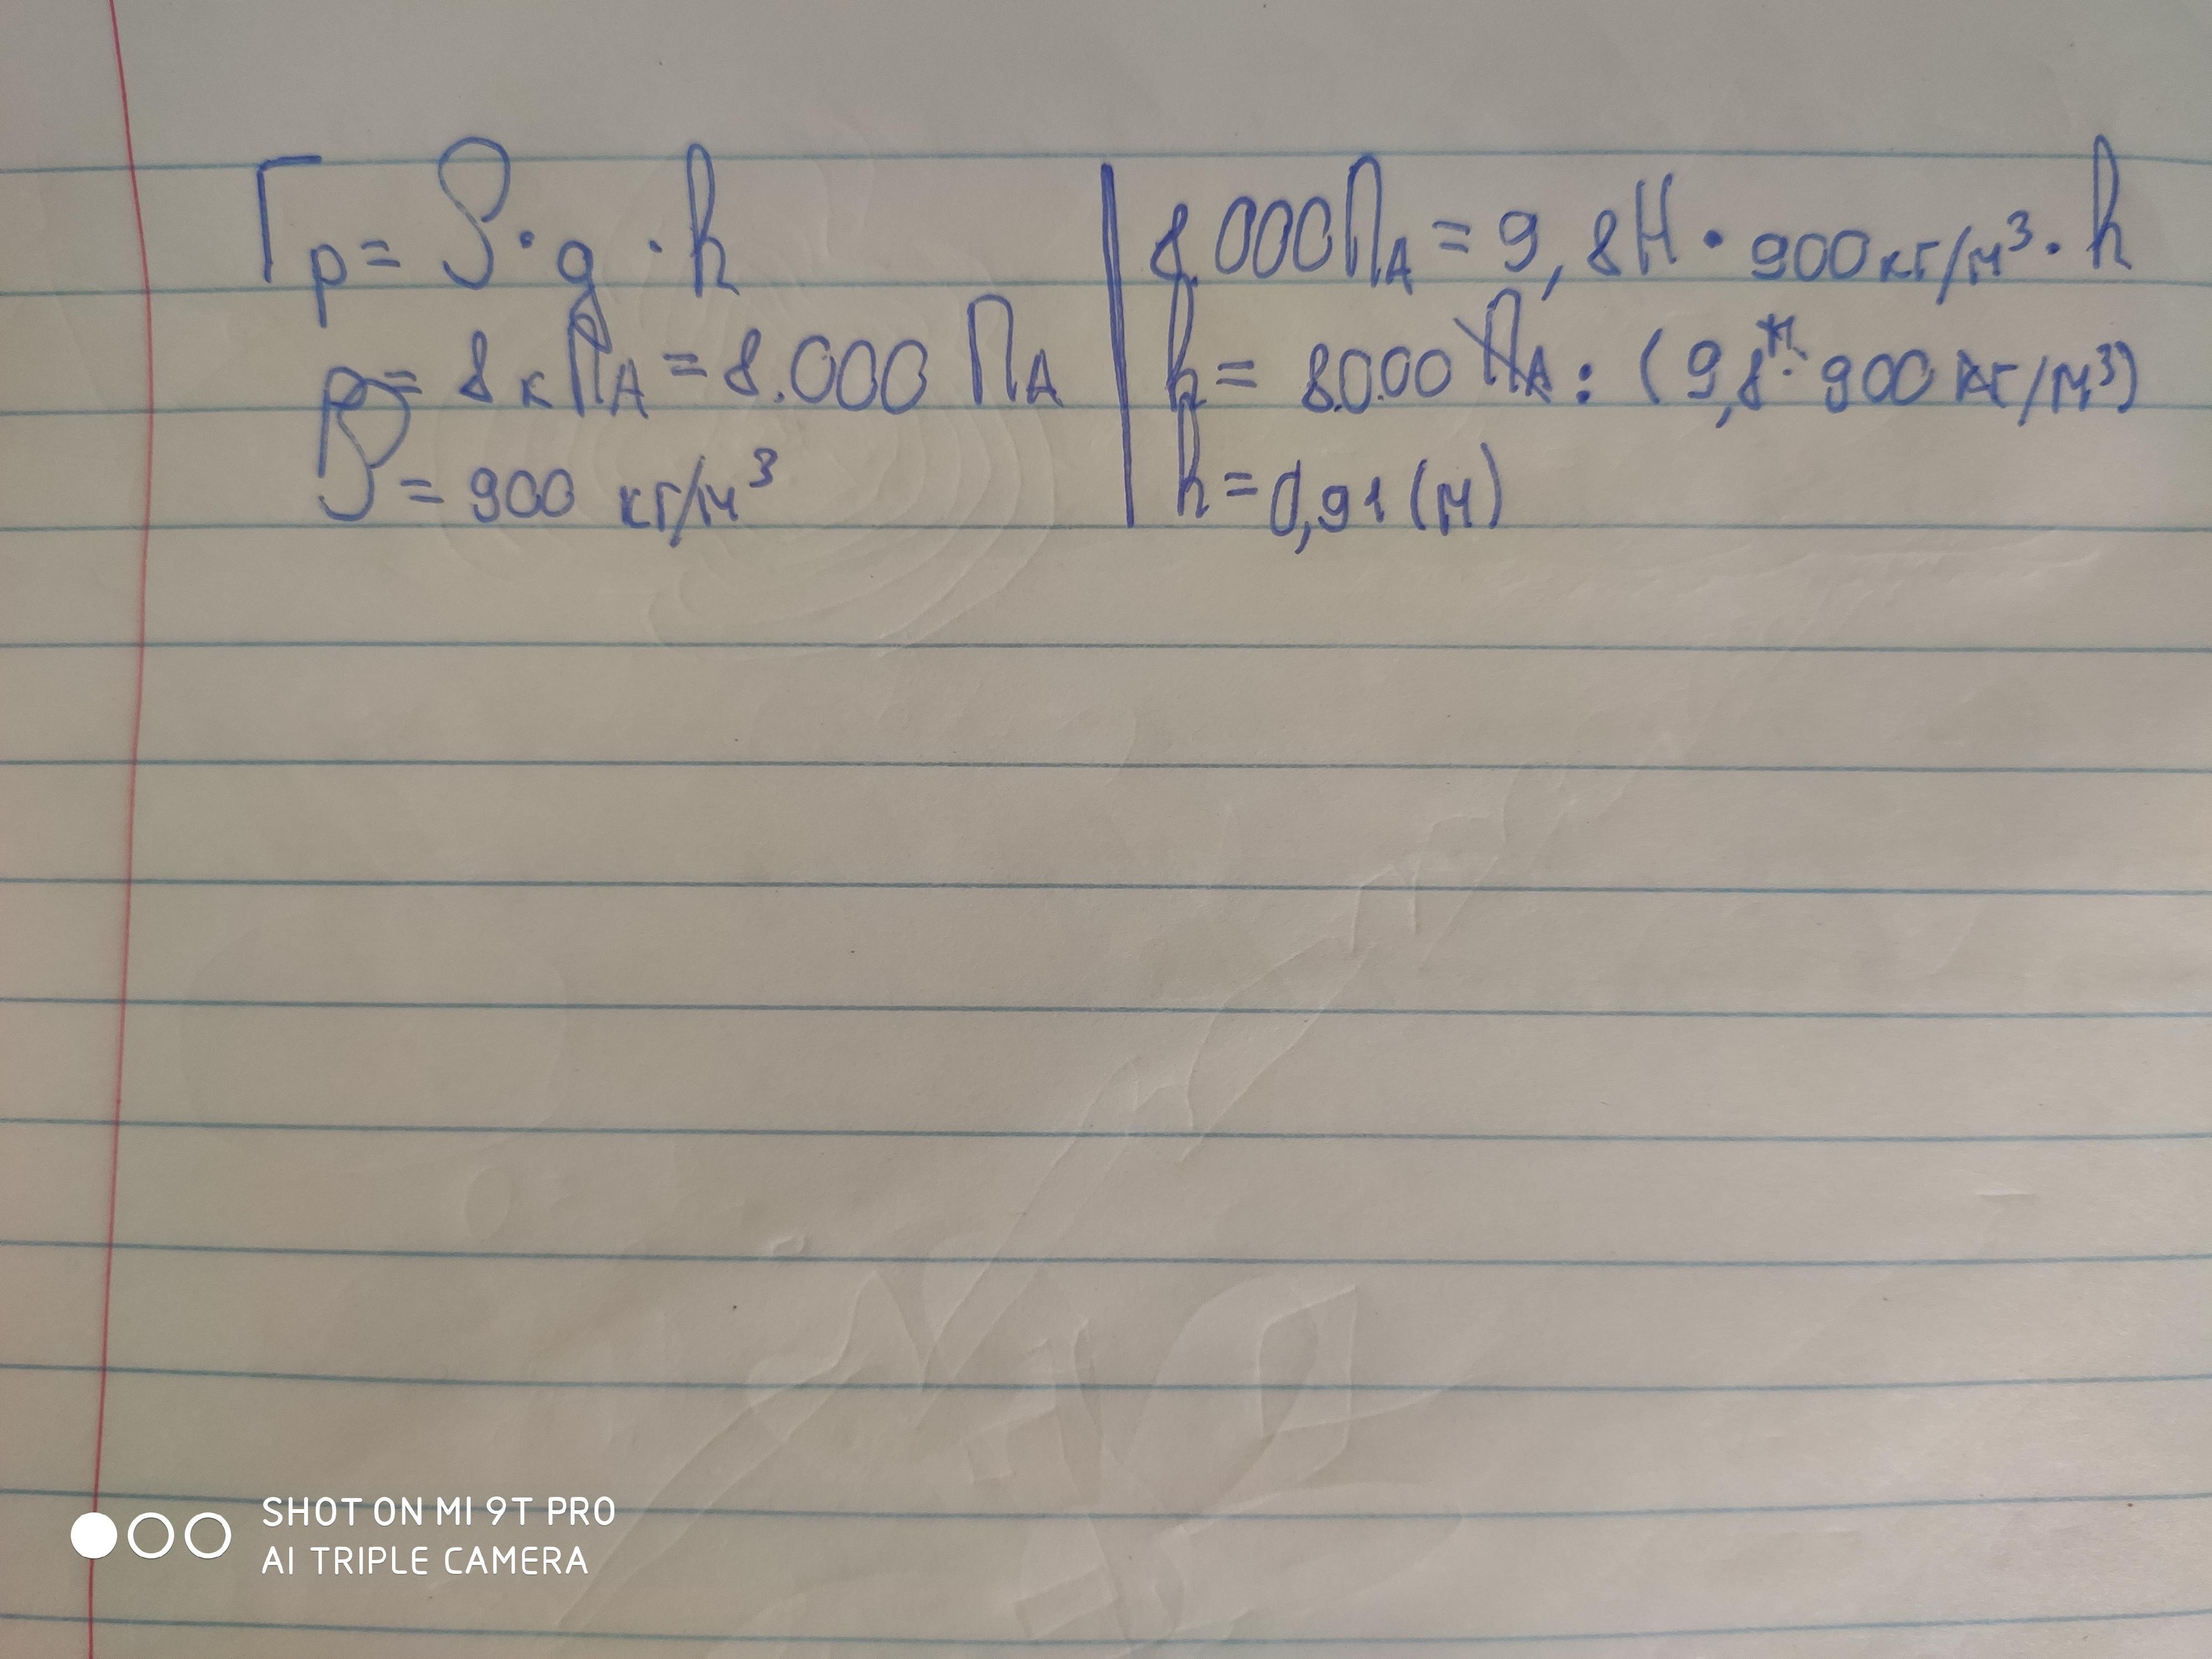 p = ρ · g · h
p = 8 кПА = 8.000 ПА
ρ = 900 кг/м³
8.000 ПА = 9,8Н · 900 кг/м³ · h
h = 8000 ПА : (9,8 · 900 кг/м³)
h = 0,91 (м)
SHOT ON MI 9T PRO
AI TRIPLE CAMERA